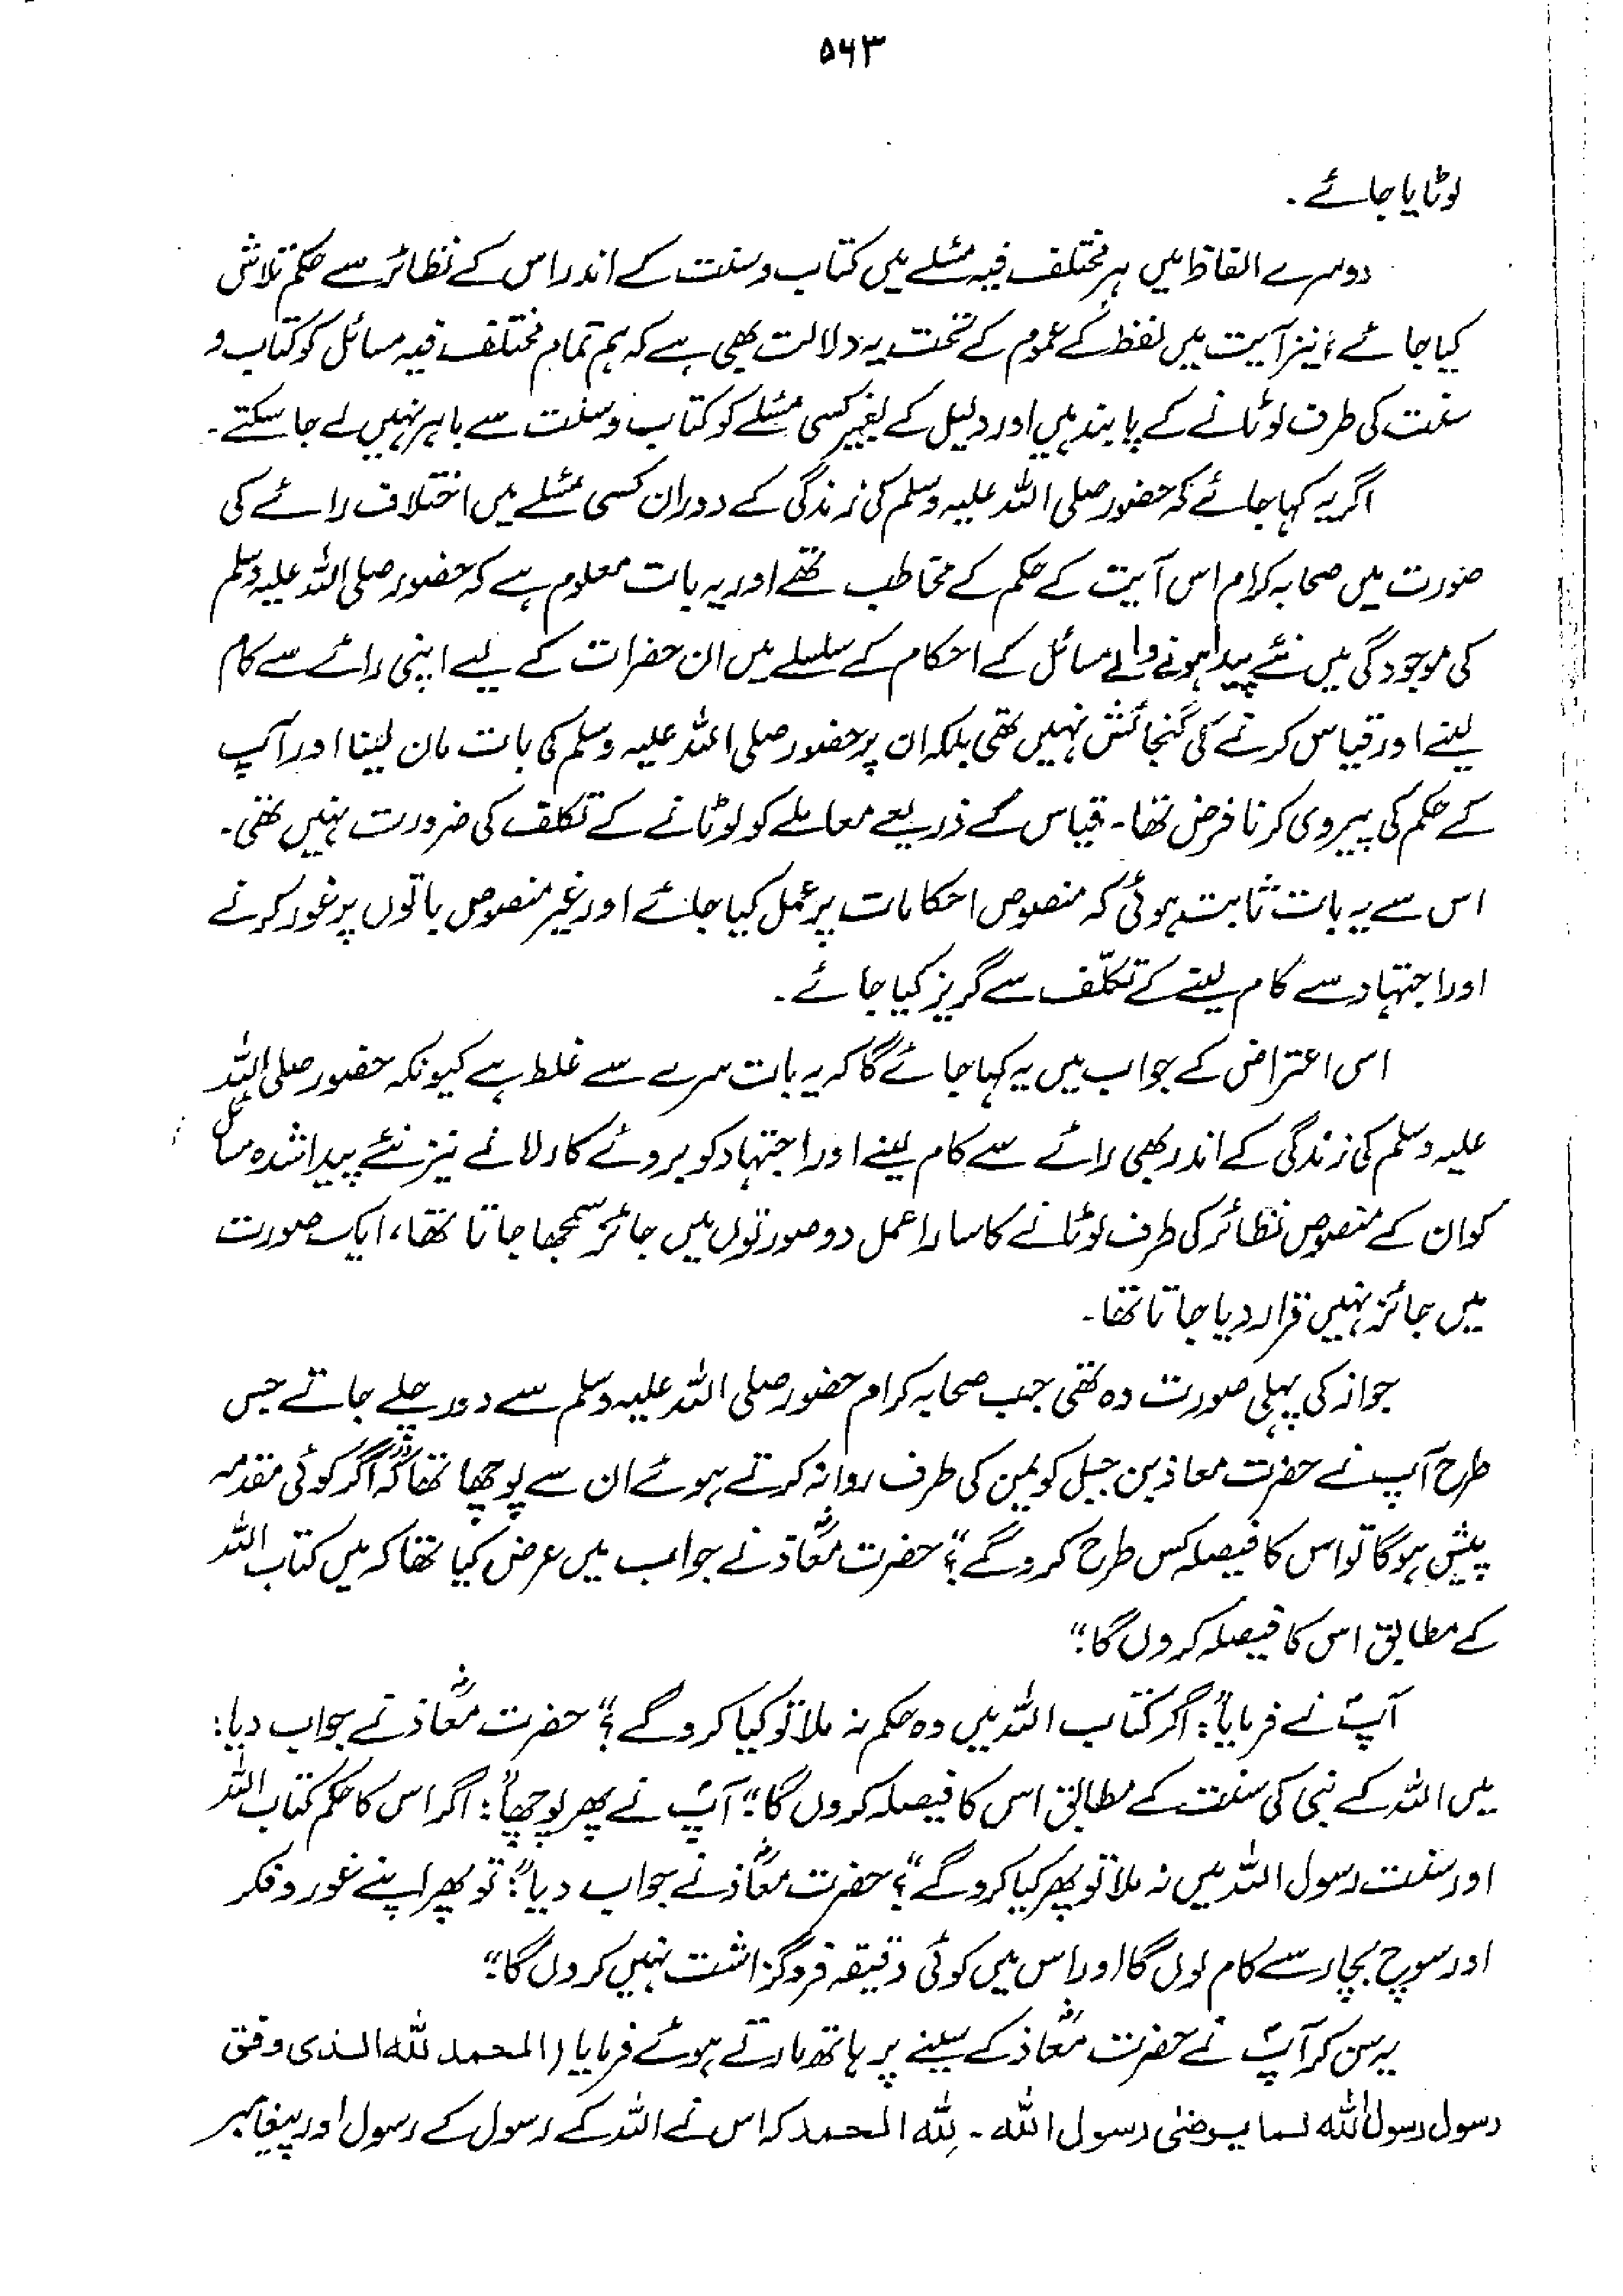 ۵۶۳
لوٹایا جائے۔
دوسرے الفاظ میں ہر مختلف فیہ مسئلے میں کتاب و سنت کے اندر اس کے نظائر سے حکم تلاش
کیا جائے، نیز آیت میں لفظ کے عموم کے تحت یہ دلالت بھی ہے کہ ہم تمام مختلف فیہ مسائل کو کتاب و
سنت کی طرف لوٹانے کے پابند ہیں اور دلیل کے بغیر کسی مسئلے کو کتاب و سنت سے باہر نہیں لے جا سکتے۔
اگر یہ کہا جائے کہ حضور صلی اللہ علیہ وسلم کی زندگی کے دوران کسی مسئلے میں اختلاف رائے کی
صورت میں صحابہ کرام اس آیت کے حکم کے مخاطب تھے اور یہ بات معلوم ہے کہ حضور صلی اللہ علیہ وسلم
کی موجودگی میں نئے پیدا ہونے والے مسائل کے احکام کے سلسلے میں ان حضرات کے لیے اپنی رائے سے کام
لینے اور قیاس کرنے کی گنجائش نہیں تھی بلکہ ان پر حضور صلی اللہ علیہ وسلم کی بات مان لینا اور آپ
کے حکم کی پیروی کرنا فرض تھا۔ قیاس کے ذریعے معاملے کو لوٹانے کے تکلف کی ضرورت نہیں تھی۔
اس سے یہ بات ثابت ہوئی کہ منصوص احکامات پر عمل کیا جائے اور غیر منصوص باتوں پر غور کرنے
اور اجتہاد سے کام لینے کے تکلّف سے گریز کیا جائے۔
اس اعتراض کے جواب میں یہ کہا جائے گا کہ یہ بات سرے سے غلط ہے کیونکہ حضور صلی اللہ
علیہ وسلم کی زندگی کے اندر بھی رائے سے کام لینے اور اجتہاد کو بروئے کار لانے نیز نئے پیدا شدہ مسائل
کو ان کے منصوص نظائر کی طرف لوٹانے کا سارا عمل دو صورتوں میں جائز سمجھا جاتا تھا، ایک صورت
میں جائز نہیں قرار دیا جاتا تھا۔
جواز کی پہلی صورت وہ تھی جب صحابہ کرام حضور صلی اللہ علیہ وسلم سے دور چلے جاتے جس
طرح آپ نے حضرت معاذ بن جبل کو یمن کی طرف روانہ کرتے ہوئے ان سے پوچھا تھا کہ "اگر کوئی مقدمہ
پیش ہوگا تو اس کا فیصلہ کس طرح کرو گے؟" حضرت معاذؓ نے جواب میں عرض کیا تھا کہ میں کتاب اللہ
کے مطابق اس کا فیصلہ کروں گا۔"
آپؐ نے فرمایا: "اگر کتاب اللہ میں وہ حکم نہ ملا تو کیا کرو گے؟" حضرت معاذؓ نے جواب دیا:
میں اللہ کے نبی کی سنت کے مطابق اس کا فیصلہ کروں گا۔" آپؐ نے پھر پوچھا: "اگر اس کا حکم کتاب اللہ
اور سنت رسول اللہ میں نہ ملا تو پھر کیا کرو گے؟" حضرت معاذؓ نے جواب دیا: "تو پھر اپنے غور و فکر
اور سوچ بچار سے کام لوں گا اور اس میں کوئی دقیقہ فروگزاشت نہیں کروں گا۔"
یہ سن کر آپؐ نے حضرت معاذؓ کے سینے پر ہاتھ مارتے ہوئے فرمایا (الحمد للہ الذی وفق
رسول رسول اللہ لما یرضی رسول اللہ۔ للہ الحمد کہ اس نے اللہ کے رسول کے رسول اور پیغامبر